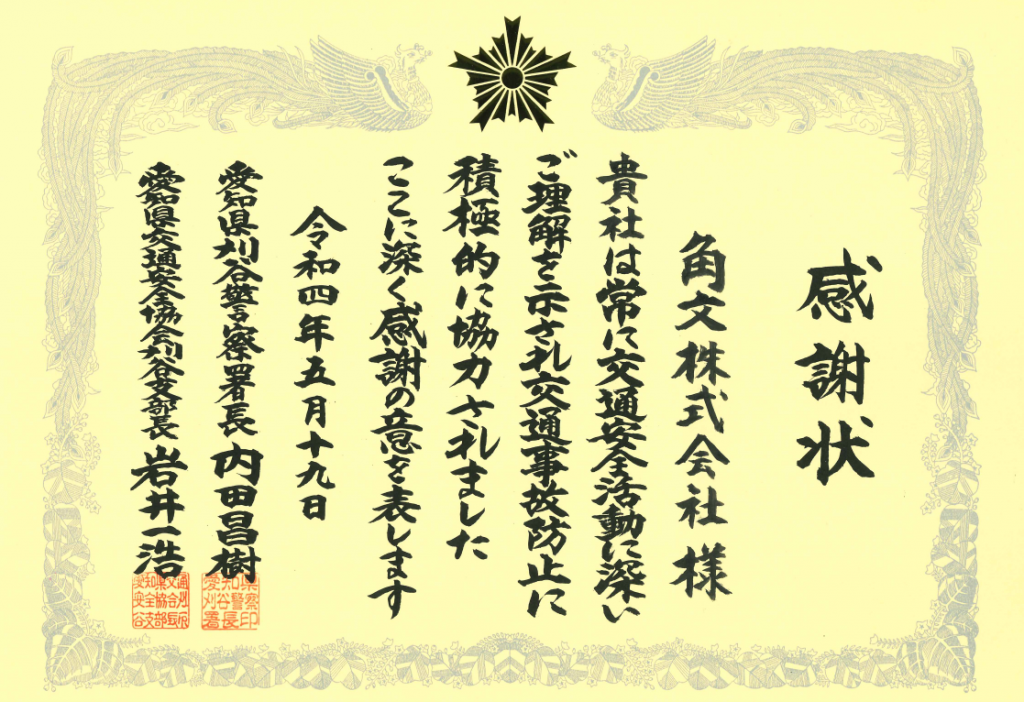 感謝状
角文株式会社 様
貴社は常に交通安全活動に深い
ご理解を示され交通事故防止に
積極的に協力されました
ここに深く感謝の意を表します
令和四年五月十九日
愛知県刈谷警察署長 内田昌樹
愛知県交通安全協会刈谷支部長 岩井一浩